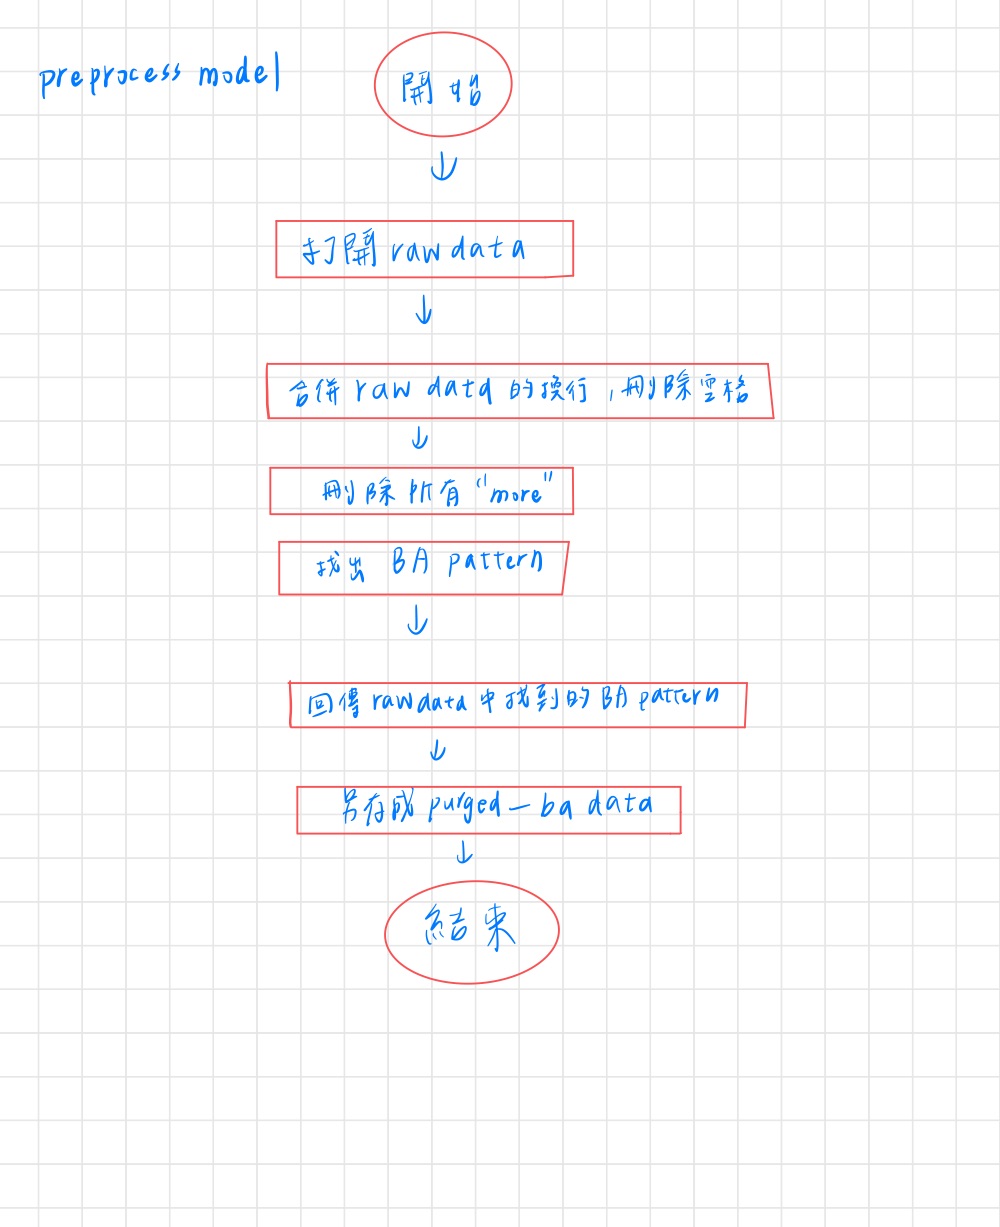 preprocess model
開始
打開 raw data
合併 raw data 的換行，刪除空格
刪除所有 "more"
找出 BA pattern
回傳 raw data 中找到的 BA pattern
另存成 purged—ba data
結束